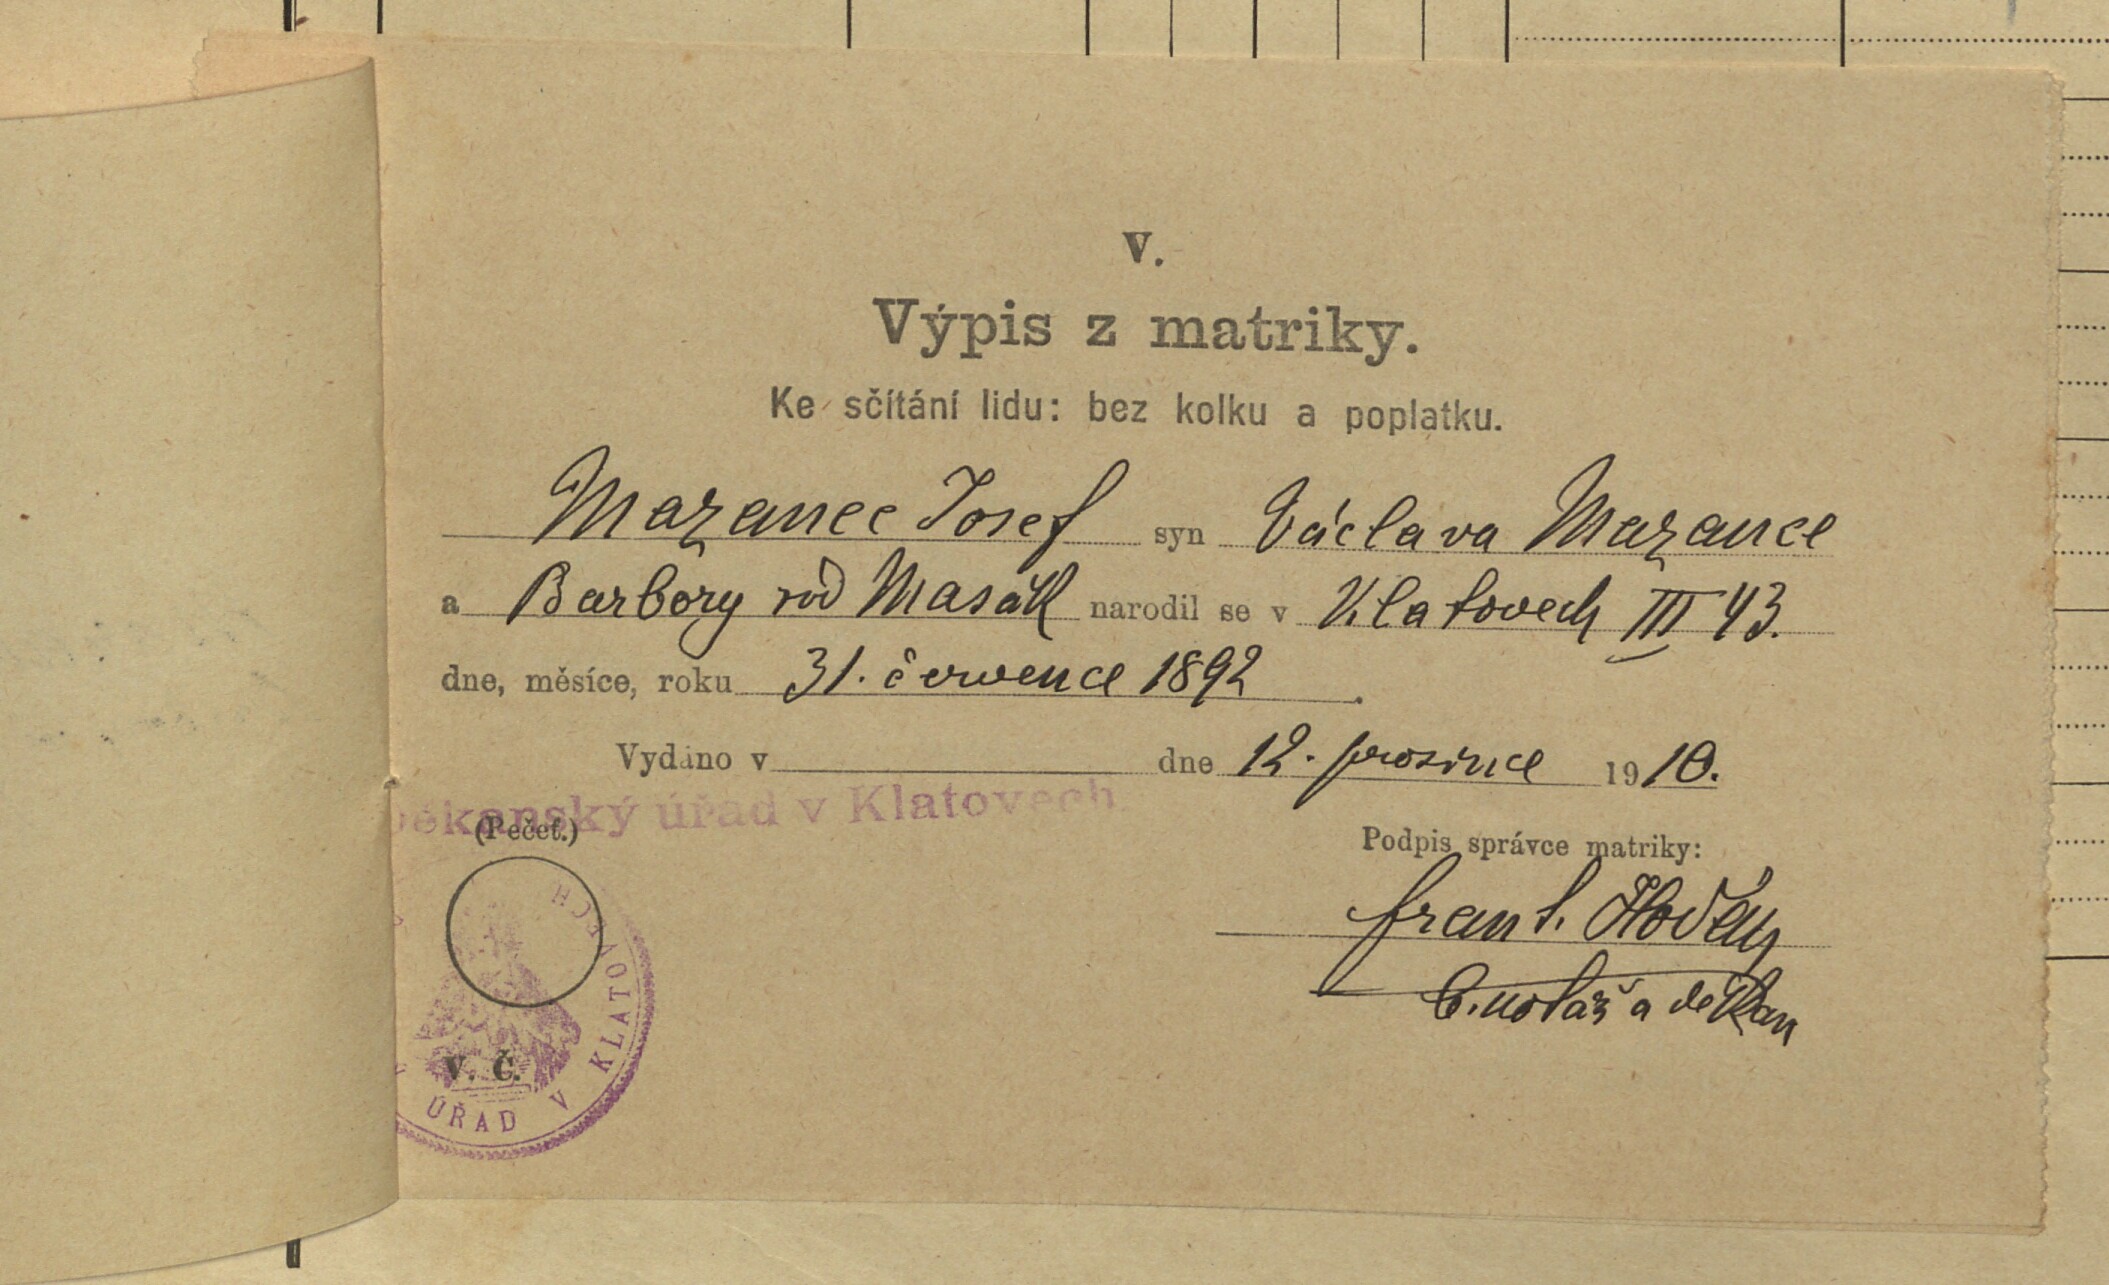 V.
Výpis z matriky.
Ke sčítání lidu: bez kolku a poplatku.
Mazanec Josef syn Václava Mazance
a Barbory rod Masák narodil se v Klatovech III 43.
dne, měsíce, roku 31. července 1892.
Vydáno v dne 12. prosince 1910.
Děkanský úřad v Klatovech.
(Pečeť.)
Podpis správce matriky:
Frant.
b. notář a děkan
V. Č.
ÚŘAD V KLATOVECH